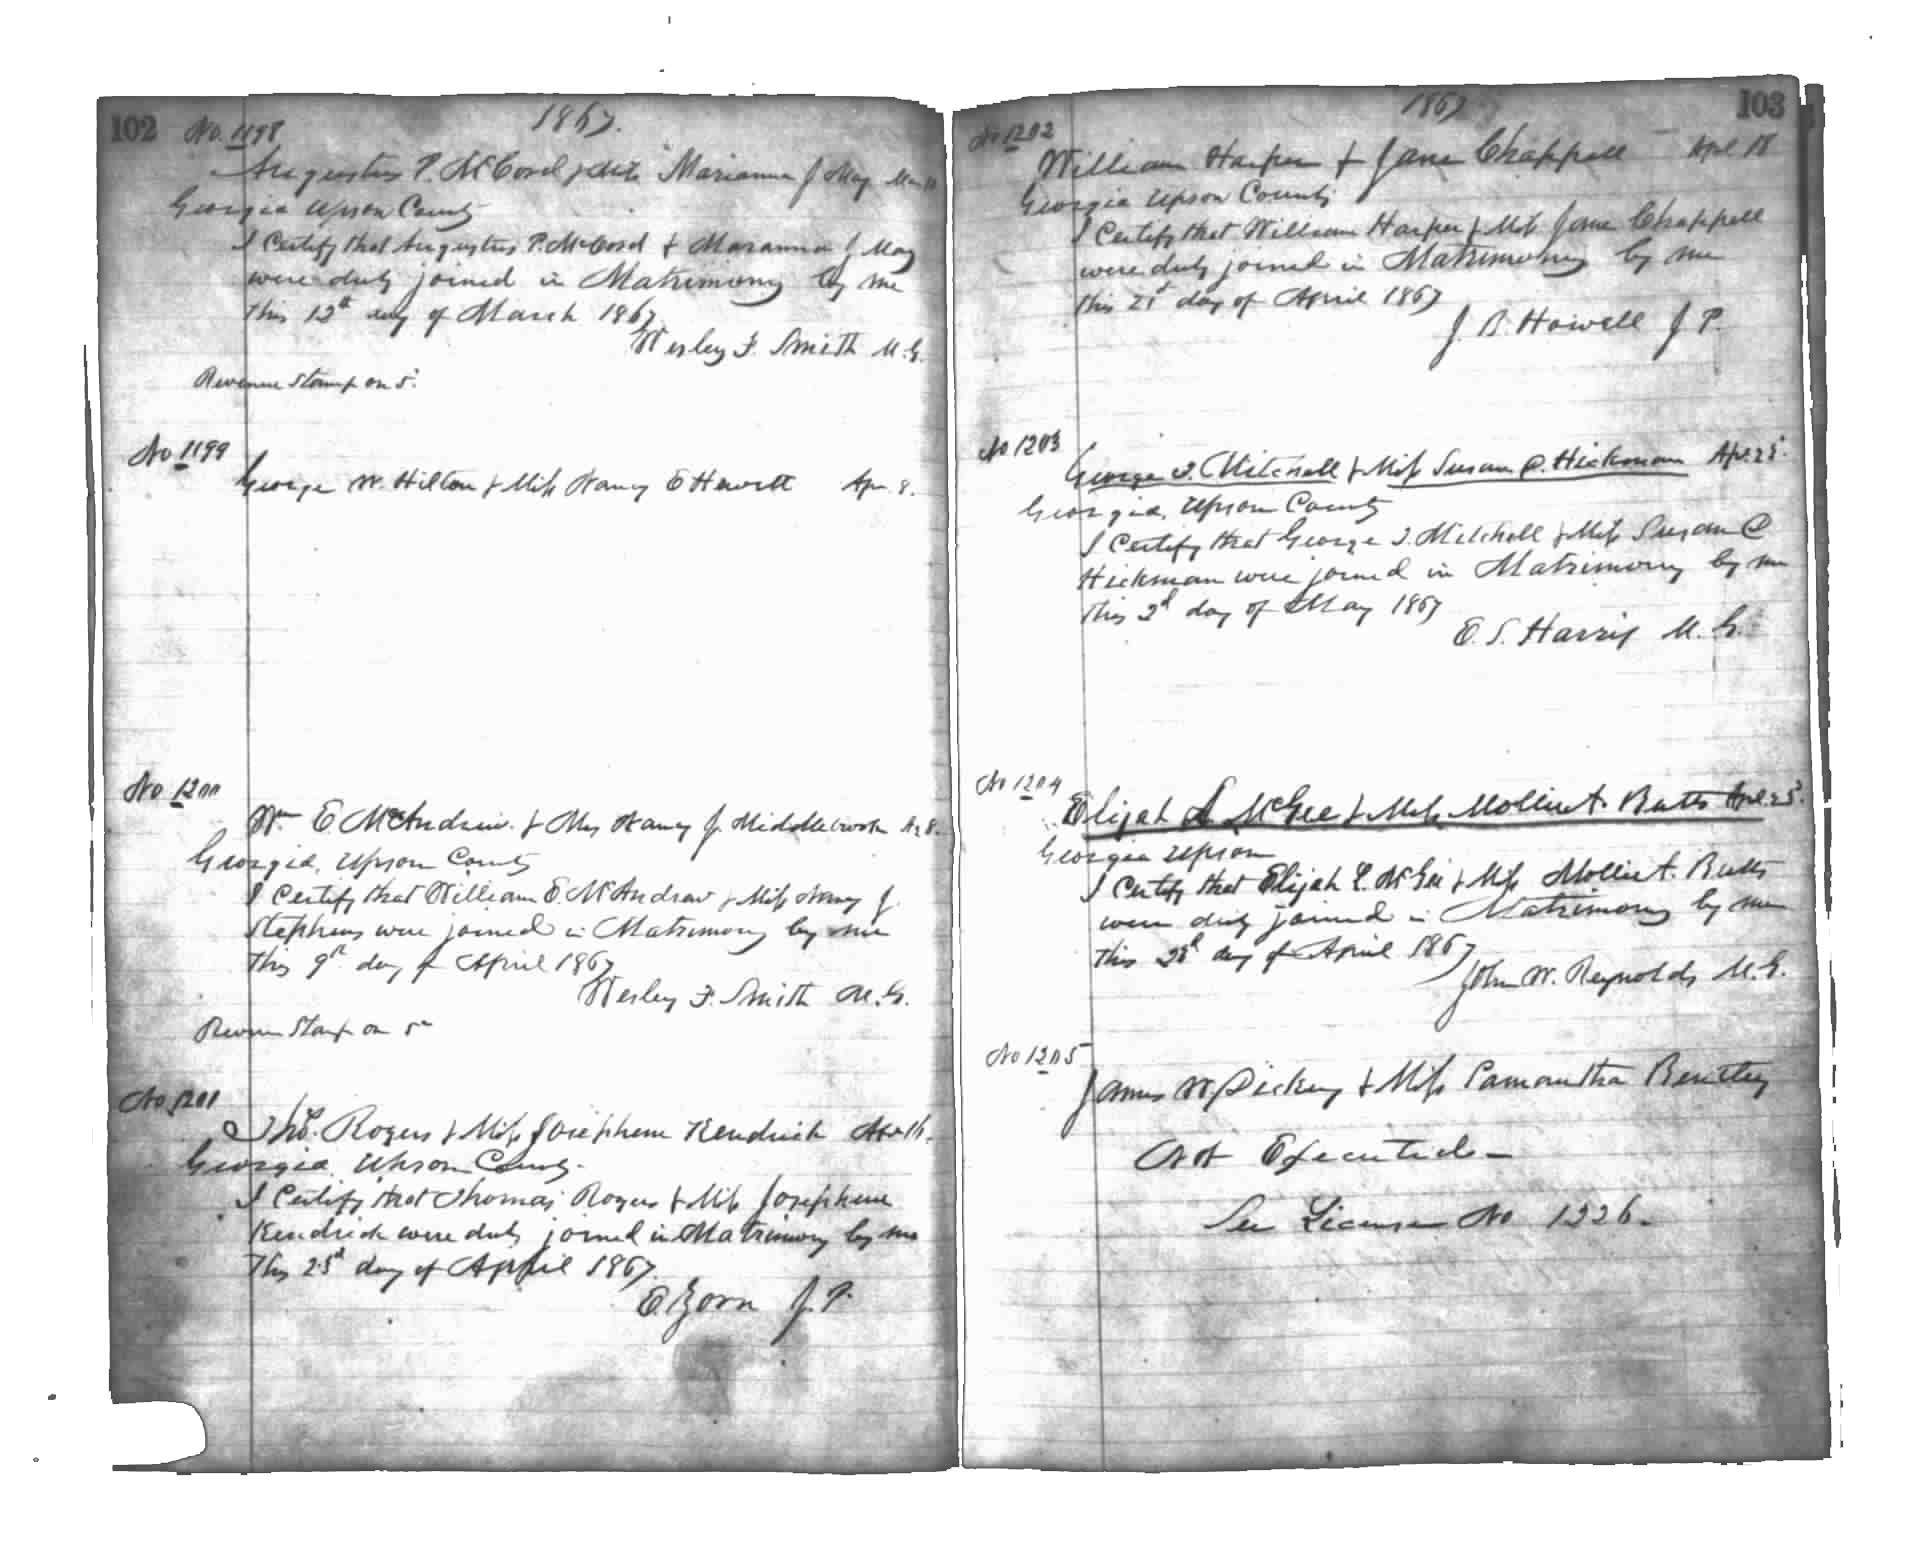 102 No. 1198 1867.
Augustus P. McCord Marianna J May
Georgia Upson County
I Certify that Augustus P. McCord & Maranna J May
were duly joined in Matrimony by me
this 12th day of March 1867
Wesley F. Smith M. G.
Revenue Stamp on 5
No 1199
George W. Hilton & Miss Nancy E Hewett Apr. 8.
No 1200
Wm E McAndrew. & Nancy J. Middlebrook
Georgia, Upson County
I Certify that William E. McAndrew & Miss Nancy J.
Stephens were joined in Matrimony by me
this 9th day of April 1867
Wesley F. Smith M. G.
Stamp on
No 1201
Thos. Rogers & Miss Josephene Kendrick Apr 16.
Georgia, Upson County.
I Certify that Thomas Rogers & Miss Josephene
Kendrick were duly joined in Matrimony by me
This 25d day of April 1867.
E. Zorn J. P.
1867 103
No 1202
William Harper & Jane Chappell Aprl 18
Georgia Upson County
I Certify that William Harper & Miss Jane Chappell
were duly joined in Matrimony by me
this 21st day of April 1867
J. B. Howell J P.
No 1203
George T. Mitchell & Miss Susan C. Hickman Apl. 25.
Georgia, Upson County
I Certify that George T. Mitchell & Miss Susan C
Hickman were joined in Matrimony by me
this 2d day of May 1867
E. S. Harris M. G.
No 1204
Elijah L McGee & Miss Mollie A. Butts Apl. 25.
Georgia Upson
I Certify that Elijah L. McGee & Miss Mollie A. Butts
were duly joined in Matrimony by me
this day of April 1867
John W. Reynolds M. G.
No 1205
James W. Dickey & Miss Samantha Bentley
Not Executed -
See License No 1226.